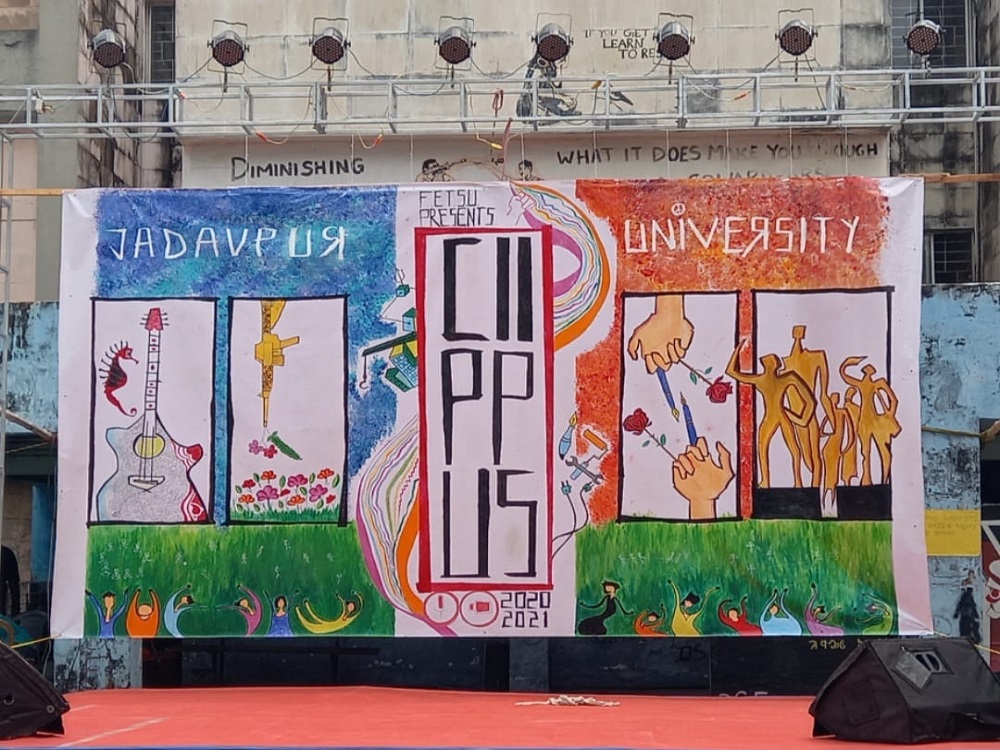 IF YOU GET
LEARN
TO RE
DIMINISHING
WHAT IT DOES MAKE YOU ENOUGH
FETSU
PRESENTS
JADAVPUR
UNIVERSITY
CII
PP
US
2020
2021